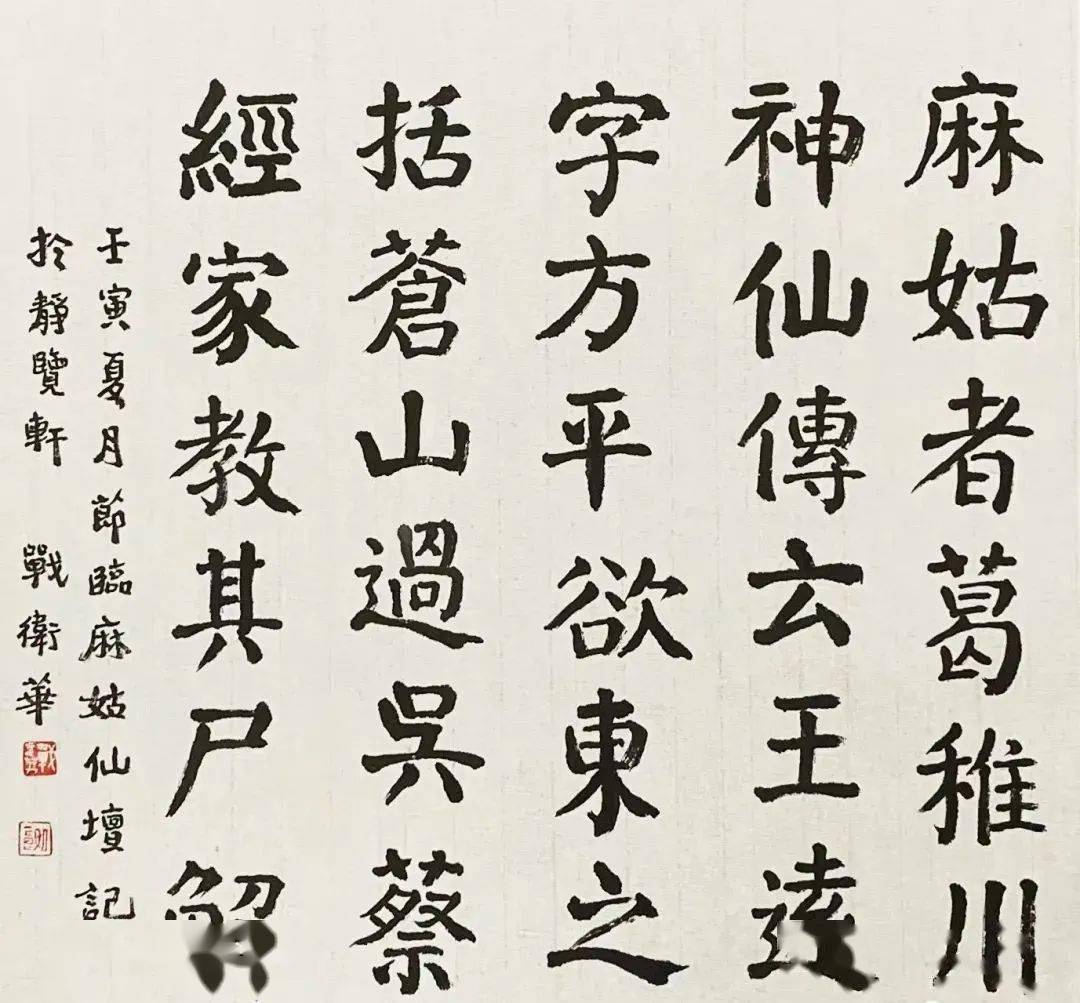 麻姑者葛稚川
神仙傳云王逵
字方平欲東之
括蒼山過吳蔡
經家教其尸解
壬寅夏月節臨麻姑仙壇記
於靜覽軒 戰衛華